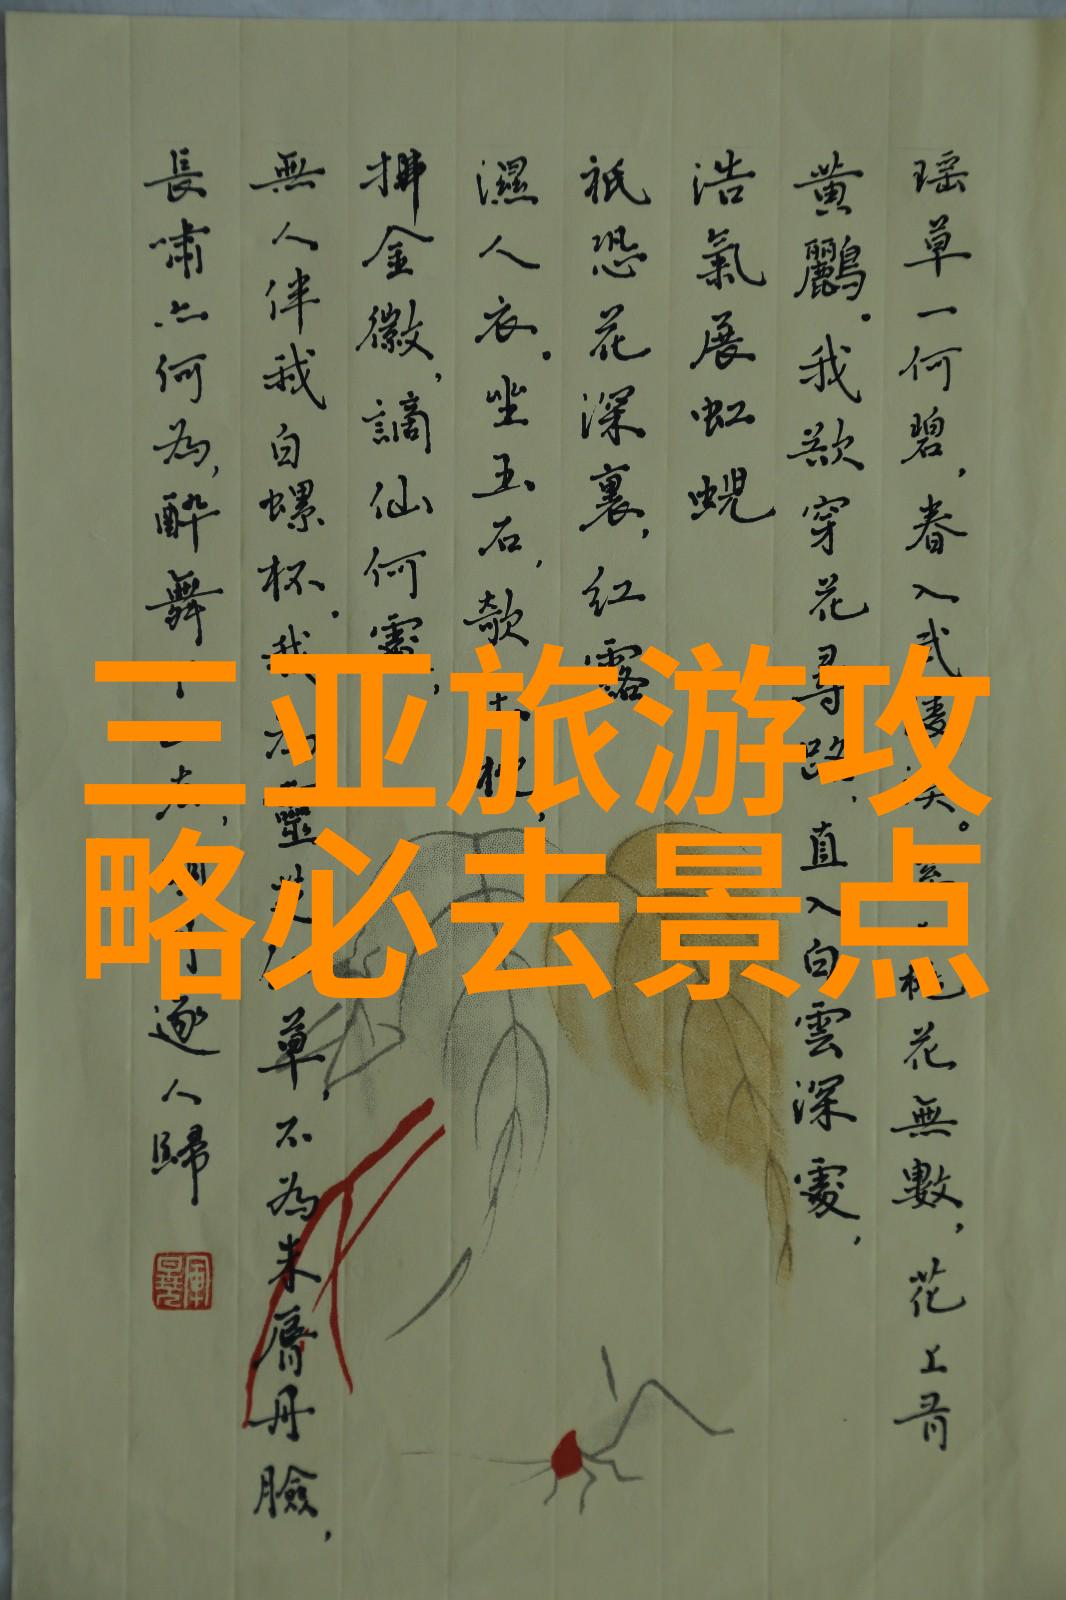 瑶草一何碧，春入武陵溪。溪上桃花無數，花上有
黄鸝。我欲穿花尋路，直入白雲深處，
浩氣展虹蜺
祇恐花深裏，紅露
濕人衣。坐玉石，欹玉枕，
拂金徽，謫仙何處，
無人伴我白螺杯。我為靈芝仙草，不為朱唇丹臉，
長嘯亦何為，醉舞下山去，明月逐人歸
三亚旅游攻
略必去景点